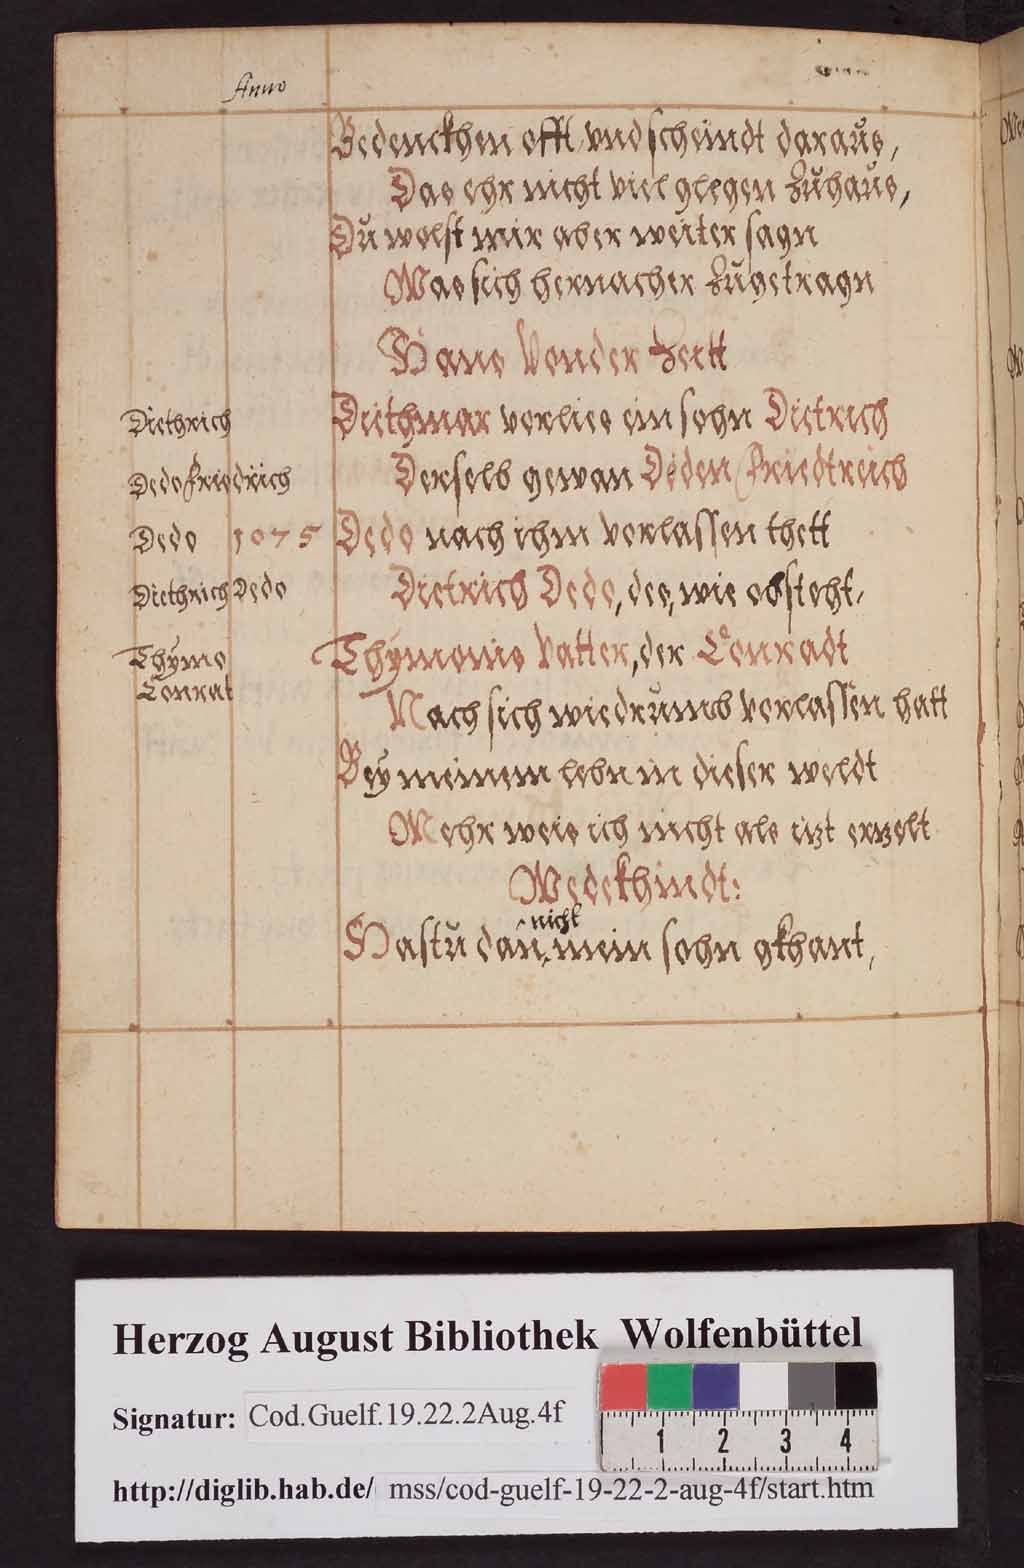 Anno
Bedenckhen offt vnd scheindt daraus,
Das ehr nicht viel glegen Zuhaus,
Du wolst mir aber weiter sagn
Was sich hernacher Zugetragn
Hans Von der Zeitt
Diethrich
Diethmar verlies ein sohn Dietrich
Dedo friedrich
Derselb gewan Deden Friedtreich
Dedo 1075 Dedo nach ihm verlassen thett
Diethrich Dedo
Dietrich Dedo, des, wie obsteht,
Thÿmo
Thÿmonis Vatter, der Conradt
Conrat
Nach sich wiedrumb verlassen hatt
Beÿ meinem lebn in dieser weldt
Mehr weis ich nicht als izt erzelt
Wedekhindt:
nicht
Hastu dan, mein sohn gkhant,
Herzog August Bibliothek Wolfenbüttel
Signatur: Cod.Guelf.19.22.2Aug.4f
1 2 3 4
http://diglib.hab.de/ mss/cod-guelf-19-22-2-aug-4f/start.htm